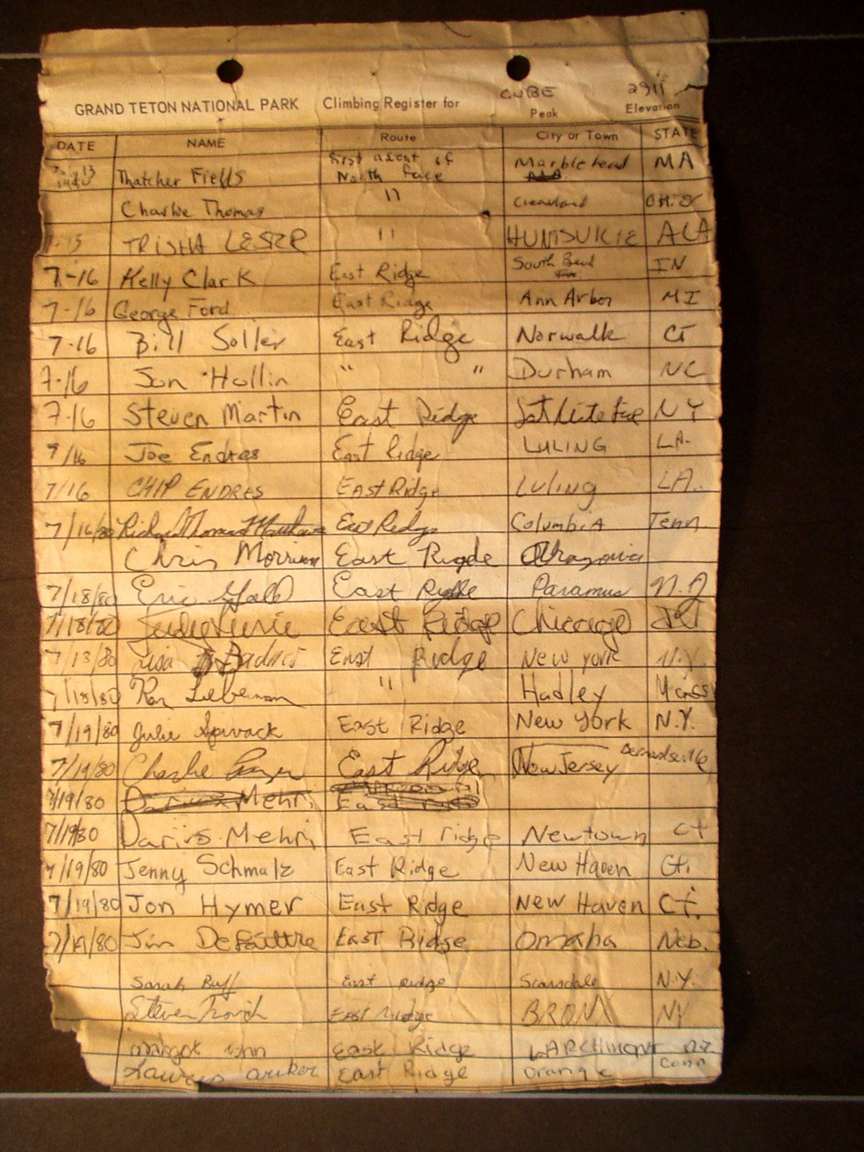 GRAND TETON NATIONAL PARK Climbing Register for CUBE Peak Elevation
DATE NAME Route City or Town STATE
Thatcher Fields First ascent of North face Marblehead MA
Charlie Thomas " Cleveland
TRISHA " ALA
7-16 Kelly Clark East Ridge South Bend IN
7-16 George Ford East Ridge Ann Arbor MI
7-16 Bill Soller East Ridge Norwalk CT
7-16 Jon Hollin " " Durham NC
7-16 Steven Martin East Ridge NY
7/16 Joe Endras East Ridge LULING LA.
7/16 CHIP ENDRES East Ridge Luling LA.
7/16/80 Richard Thomas East Ridge Columbia Tenn
Chris Morrison East Rigde
7/18/80 Eric East Paramus N.J
7/18/80 East Ridge Chicago
7/18/80 Lisa East Ridge New York N.Y.
7/18/80 Ron Lieberman " Hadley Mass
7/19/80 Julie Spivack East Ridge New York N.Y.
7/19/80 Charlie East Ridge New Jersey
7/19/80 Darius Mehri East
7/19/80 Darius Mehri East ridge Newtown Ct
7/19/80 Jenny Schmalz East Ridge New Haven Ct.
7/19/80 Jon Hymer East Ridge New Haven Ct.
7/19/80 Jim East Ridge Omaha Neb.
Sarah Ruff East ridge Scarsdale N.Y.
Steven East ridge BRONX NY
Margot East Ridge LARCHMONT
East Ridge Orange Conn